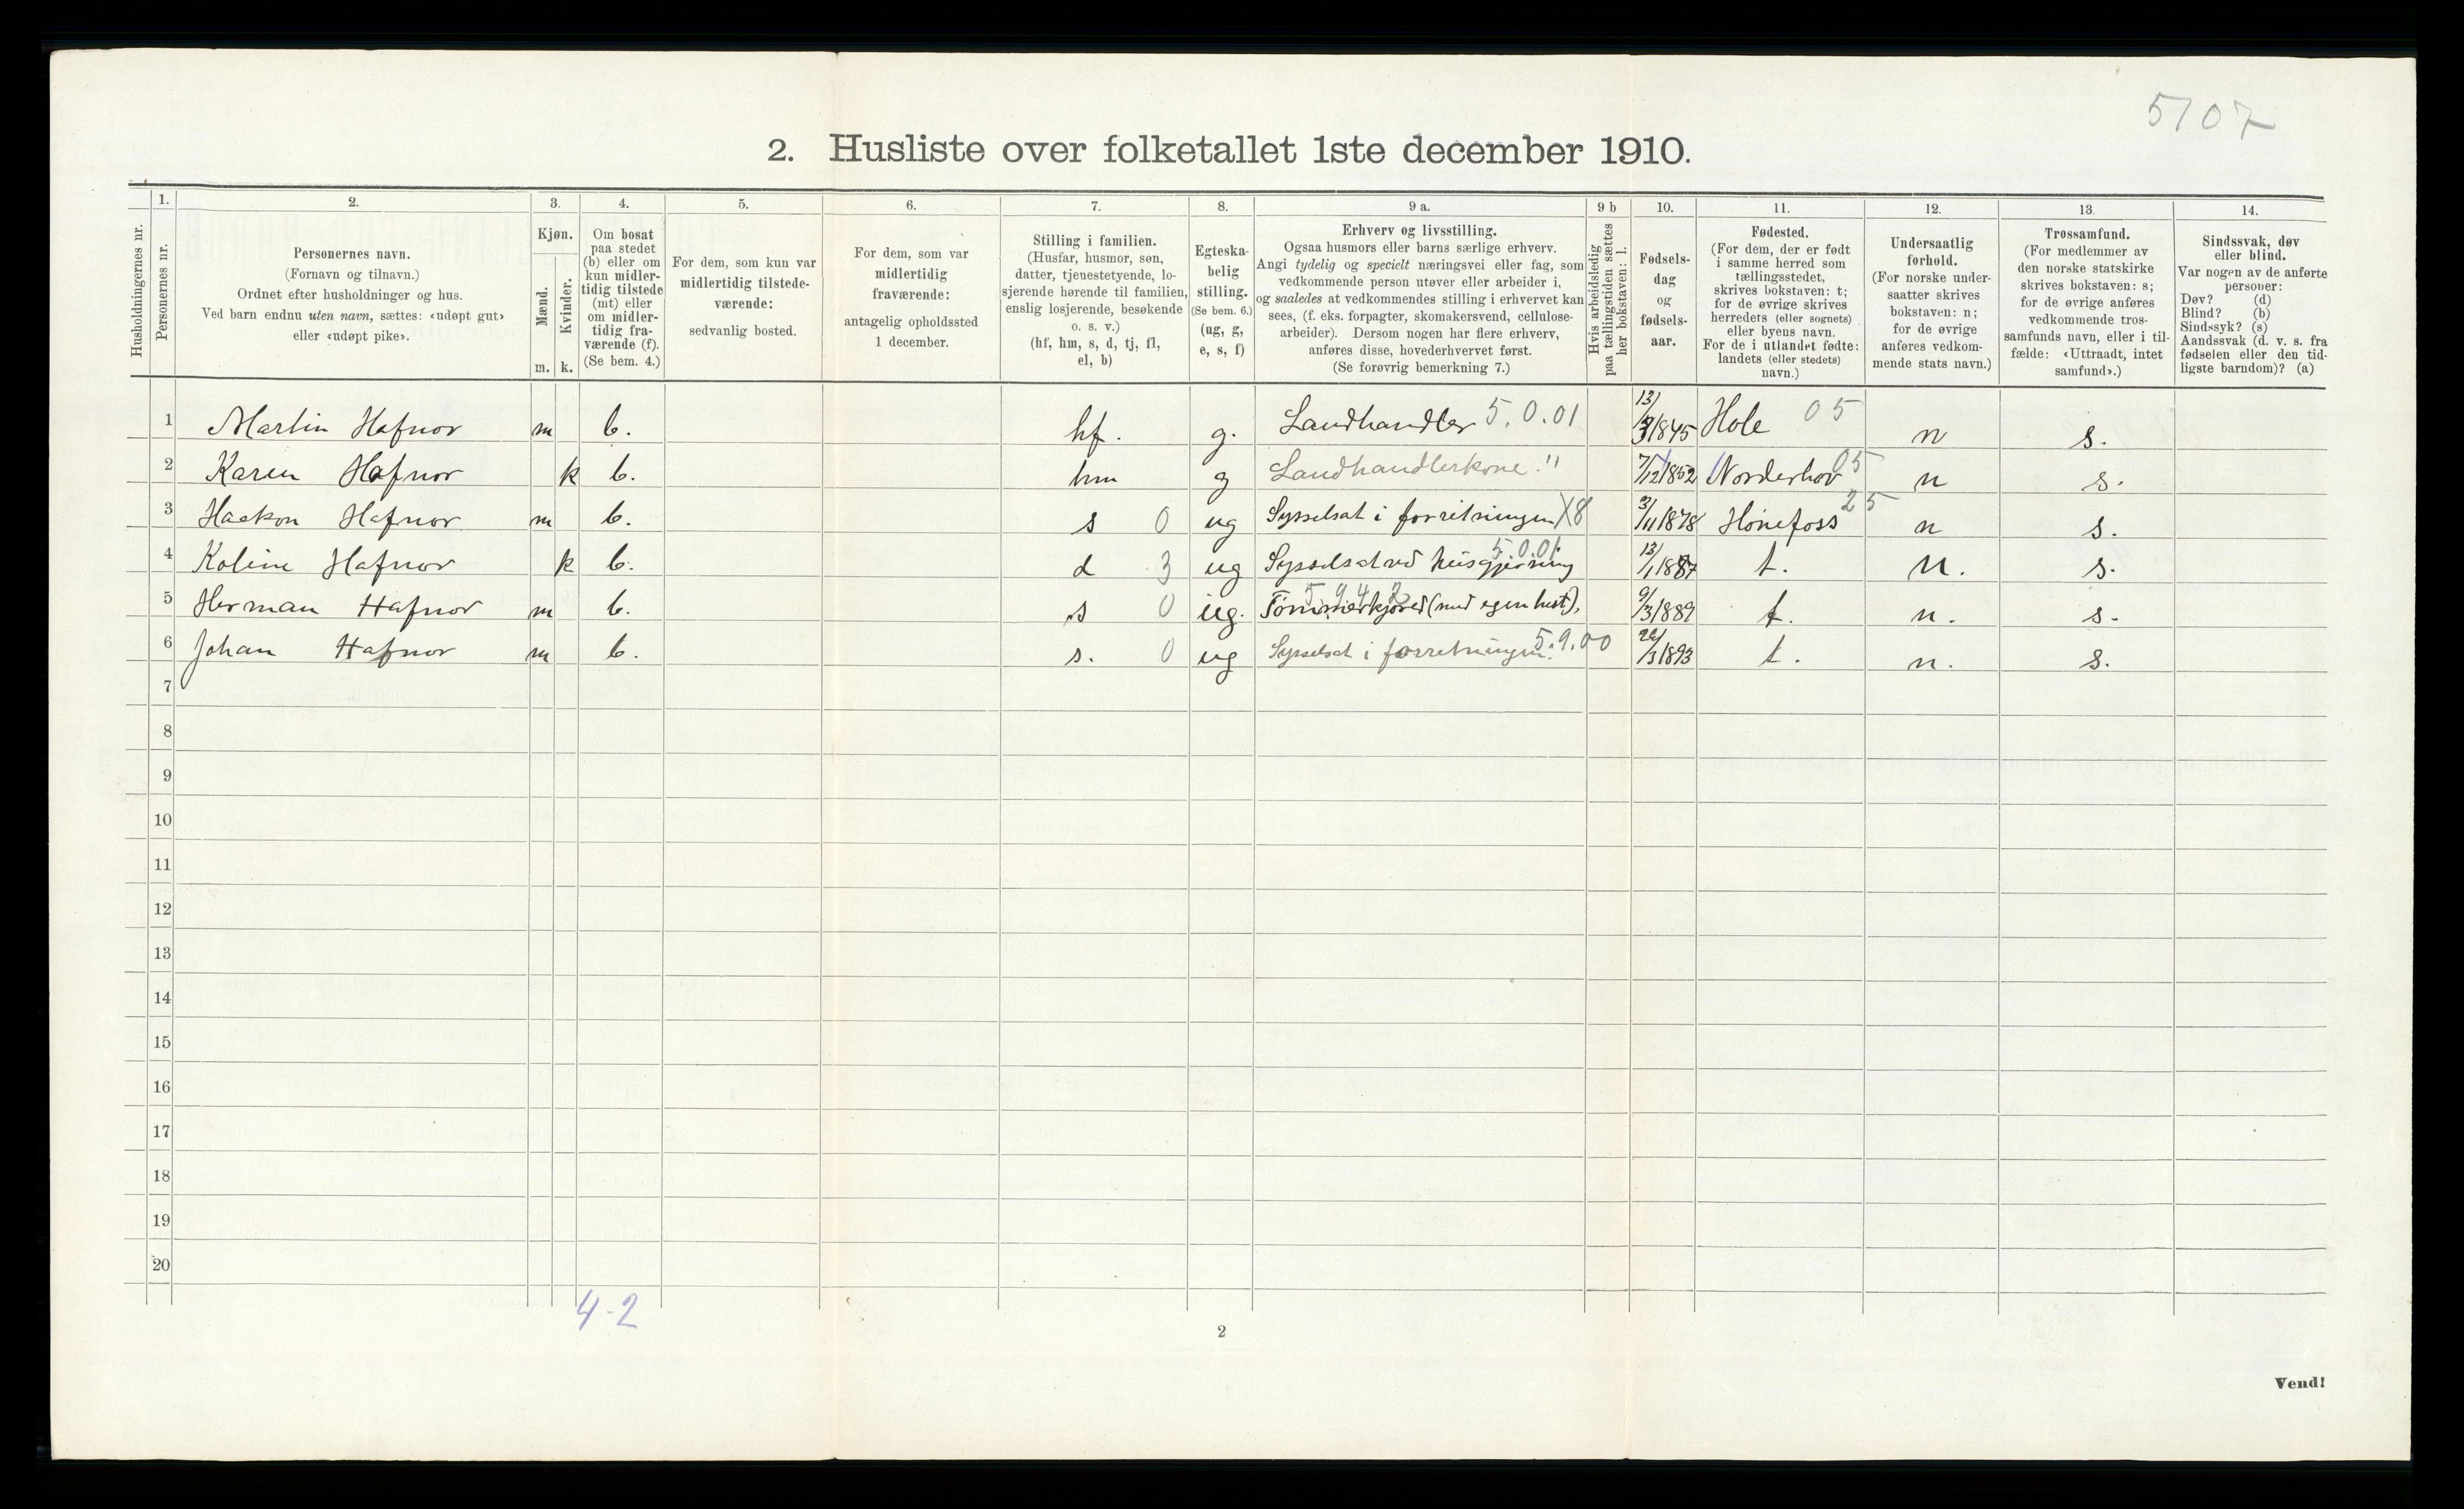 5107
2. Husliste over folketallet 1ste december 1910.
Husholdningernes nr.
1.
Personernes nr.
2.
Personernes navn.
(Fornavn og tilnavn.)
Ordnet efter husholdninger og hus.
Ved barn endnu uten navn, sættes: «udøpt gut»
eller «udøpt pike».
3.
Kjøn.
Mænd.
Kvinder.
m.
k.
4.
Om bosat
paa stedet
(b) eller om
kun midler-
tidig tilstede
(mt) eller
om midler-
tidig fra-
værende (f).
(Se bem. 4.)
5.
For dem, som kun var
midlertidig tilstede-
værende:
sedvanlig bosted.
6.
For dem, som var
midlertidig
fraværende:
antagelig opholdssted
1 december.
7.
Stilling i familien.
(Husfar, husmor, søn,
datter, tjenestetyende, lo-
sjerende hørende til familien,
enslig losjerende, besøkende
o. s. v.)
(hf, hm, s, d, tj, fl,
el, b)
8.
Egteska-
belig
stilling.
(Se bem. 6.)
(ug, g,
e, s, f)
9 a.
Erhverv og livsstilling.
Ogsaa husmors eller barns særlige erhverv.
Angi tydelig og specielt næringsvei eller fag, som
vedkommende person utøver eller arbeider i,
og saaledes at vedkommendes stilling i erhvervet kan
sees, (f. eks. forpagter, skomakersvend, cellulose-
arbeider). Dersom nogen har flere erhverv,
anføres disse, hovederhvervet først.
(Se forøvrig bemerkning 7.)
9 b
Hvis arbeidsledig
paa tællingstiden sættes
her bokstaven: l.
10.
Fødsels-
dag
og
fødsels-
aar.
11.
Fødested.
(For dem, der er født
i samme herred som
tællingsstedet,
skrives bokstaven: t;
for de øvrige skrives
herredets (eller sognets)
eller byens navn.
For de i utlandet fødte:
landets (eller stedets)
navn.)
12.
Undersaatlig
forhold.
(For norske under-
saatter skrives
bokstaven: n;
for de øvrige
anføres vedkom-
mende stats navn.)
13.
Trossamfund.
(For medlemmer av
den norske statskirke
skrives bokstaven: s;
for de øvrige anføres
vedkommende tros-
samfunds navn, eller i til-
fælde: «Uttraadt, intet
samfund».)
14.
Sindssvak, døv
eller blind.
Var nogen av de anførte
personer:
Døv? (d)
Blind? (b)
Sindssyk? (s)
Aandssvak (d. v. s. fra
fødselen eller den tid-
ligste barndom)? (a)
1 Martin Hafnor m b. hf. g. Landhandler 5.0.01 13/ 1845 Hole 05 n s.
2 Karen Hafnor k b. hm g Landhandlerkone." 7/12 1852 Norderhov 05 n s.
3 Haakon Hafnor m b. s 0 ug Sysselsat i forretningen X8 3/11 1878 Hönefoss 25 n s.
4 Koline Hafnor k b. d 3 ug Sysselsat ved husgjerning 5.0.01 13/1 1887 t. n. s.
5 Herman Hafnor m b. s 0 ug. Tømmerkjører (med egen hest). 5.94.2 9/3 1889 t. n. s.
6 Johan Hafnor m b. s. 0 ug Sysselsat i forretningen. 5.9.00 /3 1893 t. n. s.
7
8
9
10
11
12
13
14
15
16
17
18
19
20
4-2
2
Vend!